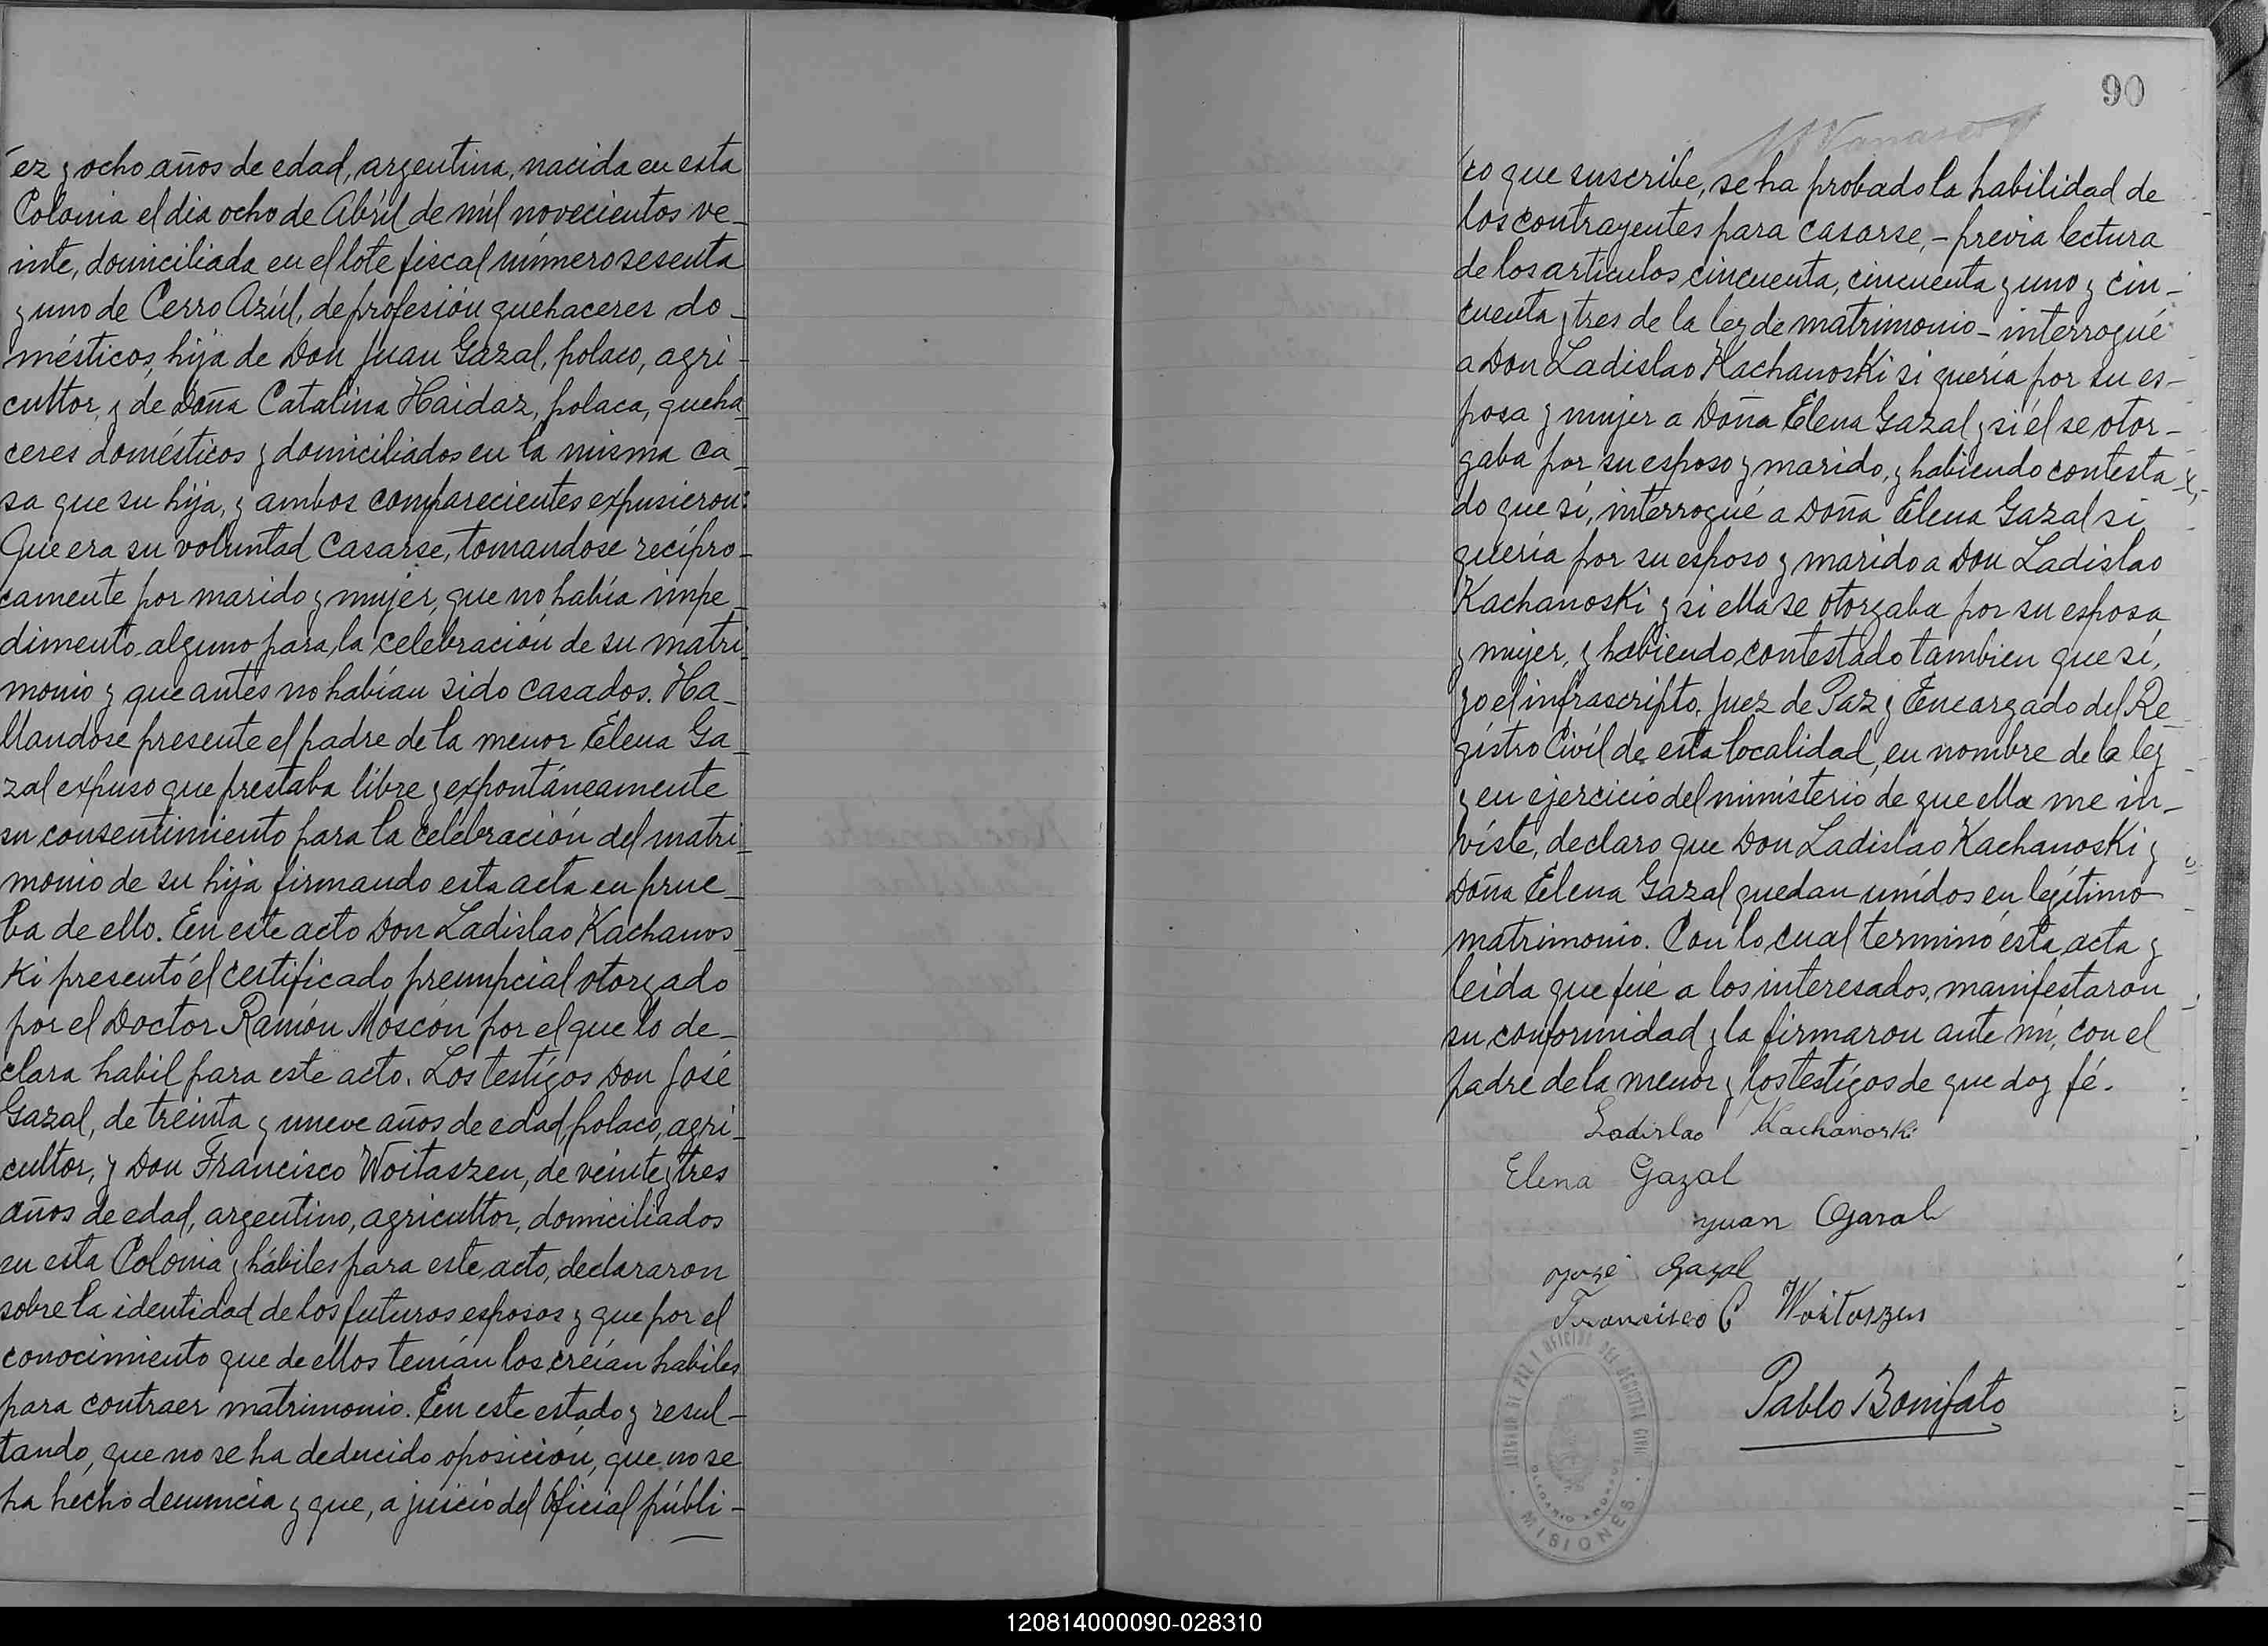 ez y ocho años de edad, argentina, nacida en esta
Colonia el dia ocho de Abril de mil novecientos ve-
inte, domiciliada en el lote fiscal número sesenta
y uno de Cerro Azúl, de profesión quehaceres do-
mésticos, hija de Don Juan Gazal, polaco, agri-
cultor, y de Doña Catalina Haidaz, polaca, queha-
ceres domésticos y domiciliados en la misma ca-
sa que su hija, y ambos comparecientes expusieron:
Que era su voluntad casarse, tomandose recípro-
camente por marido y mujer, que no había impe-
dimento alguno para la celebración de su matri-
monio y que antes no habían sido casados. Ha-
llandose presente el padre de la menor Elena Ga-
zal expuso que prestaba libre y expontáneamente
su consentimiento para la celebración del matri-
monio de su hija firmando esta acta en prue-
ba de ello. En este acto Don Ladislao Kachanos-
Ki presentó el certificado prenupcial otorgado
por el Doctor Ramón Moscón por el que lo de-
clara habil para este acto. Los testígos Don José
Gazal, de treinta y nueve años de edad, polaco, agri-
cultor, y Don Francisco Woitaszen, de veinte y tres
años de edad, argentino, agricultor, domiciliados
en esta Colonia y hábiles para este acto, declararon
sobre la identidad de los futuros esposos y que por el
conocimiento que de ellos tenían los creían habiles
para contraer matrimonio. En este estado y resul-
tando, que no se ha deducido oposición, que no se
ha hecho denuncia y que, a juicio del Oficial públi-
90
co que suscribe, se ha probado la habilidad de
los contrayentes para casarse, - previa lectura
de los artículos cincuenta, cincuenta y uno y cin-
cuenta y tres de la ley de matrimonio - interrogué
a Don Ladislao Kachanoski si quería por su es-
posa y mujer a Doña Elena Gazal y si él se otor-
gaba por su esposo y marido, y habiendo contesta-
do que sí, interrogué a Doña Elena Gazal si
quería por su esposo y marido a Don Ladislao
Kachanoski y si ella se otorgaba por su esposa
y mujer, y habiendo contestado tambien que sí,
yo el infrascripto, Juez de Paz y Encargado del Re-
gistro Civíl de esta localidad, en nombre de la ley
y en ejercicio del ministerio de que ella me in-
viste, declaro que Don Ladislao Kachanoski y
Doña Elena Gazal quedan unidos en legítimo
matrimonio. Con lo cual terminó esta acta y
leída que fué a los interesados, manifestaron
su conformidad y la firmaron ante mí, con el
padre de la menor y los testígos de que doy fé.
Ladislao Kachanoski
Elena Gazal
Juan Gazal
José Gazal
Francisco C Woitaszen
Pablo Bonifato
JUZGADO DE PAZ Y OFICINA DEL REGISTRO CIVIL
MISIONES
120814000090-028310